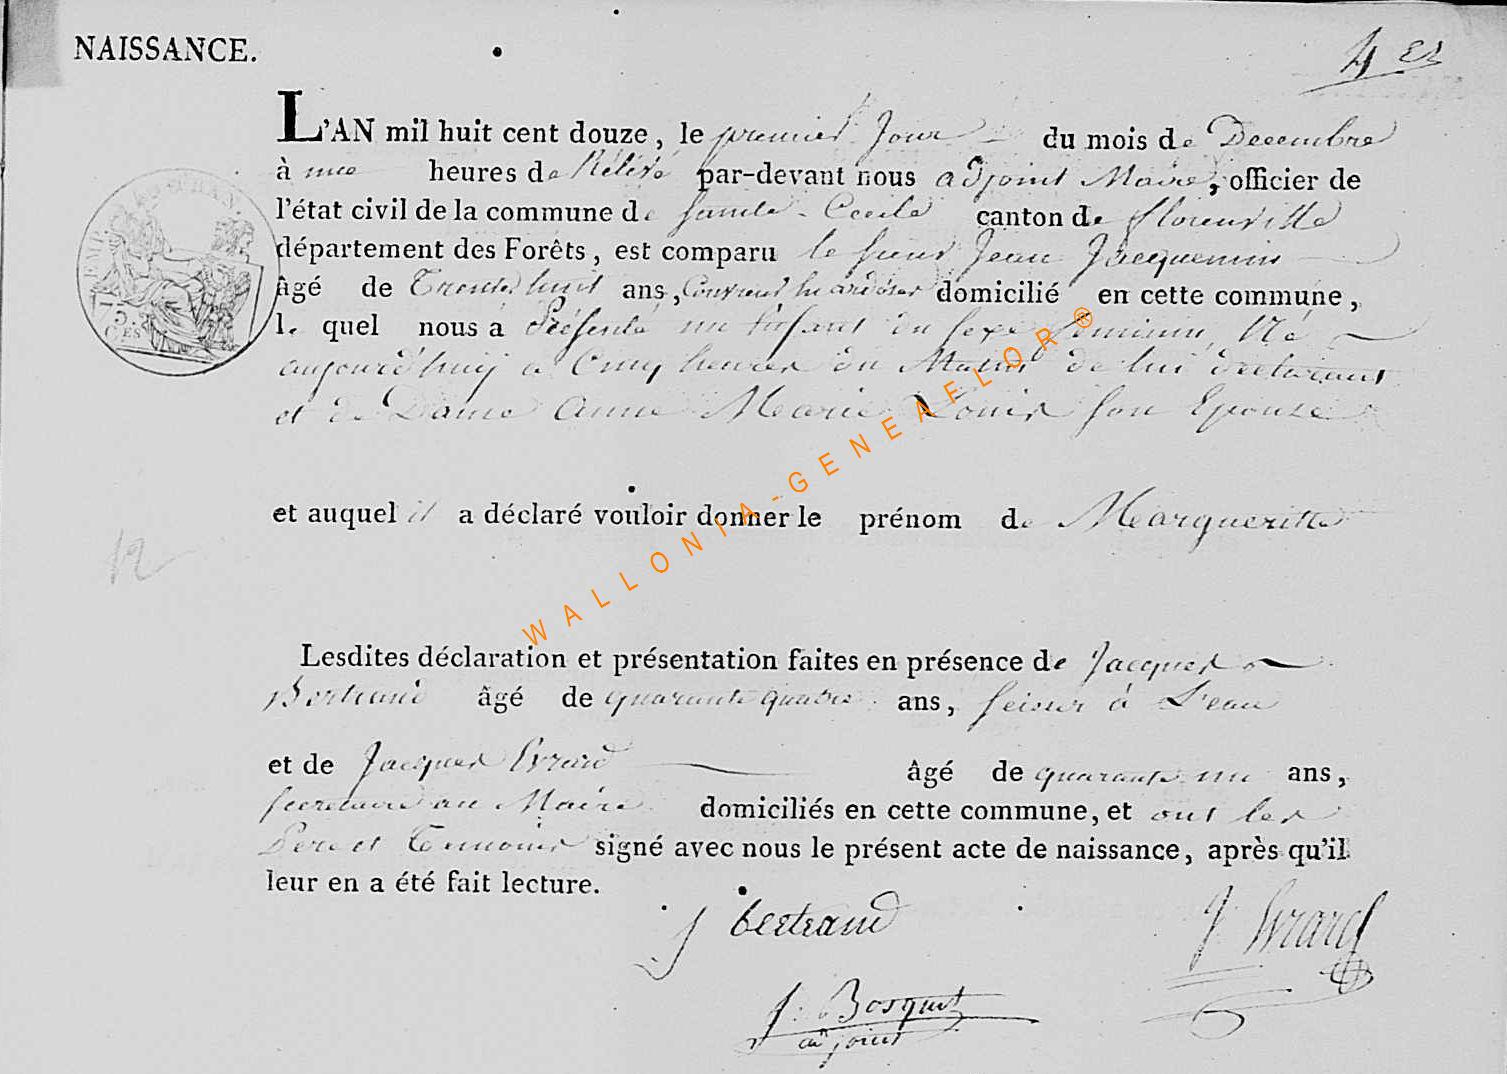 NAISSANCE.
4 et
L'AN mil huit cent douze, le premier Jour du mois de Decembre
à une heures de Rélévé par-devant nous adjoint Maire, officier de
l'état civil de la commune de Sainte-Cecile canton de florenville
département des Forêts, est comparu le sieur Jean Jacquemin
âgé de Trente huit ans, domicilié en cette commune,
le quel nous a Présenté un Enfant du sexe feminin, Né
aujourd'huij a Cinq heures du Matin de lui declarant
et de Dame Anne Marie Louis son Epouse
et auquel il a déclaré vouloir donner le prénom de Margueritte
12
Lesdites déclaration et présentation faites en présence de Jacques
Bertrand âgé de quarante quatre ans, à L'eau
et de Jacques Evrard âgé de quarante un ans,
secretaire au Maire domiciliés en cette commune, et ont les
Pere et Temoins signé avec nous le présent acte de naissance, après qu'il
leur en a été fait lecture.
J bertrand
J Evrard
J: Bosquet
adjoint
EMP. FRAN.
75
CES
WALLONIA-GENEAFLOR®